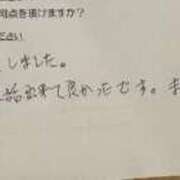 何点を頂けますか？
ださい
しました。
話出来て良かったです。ま